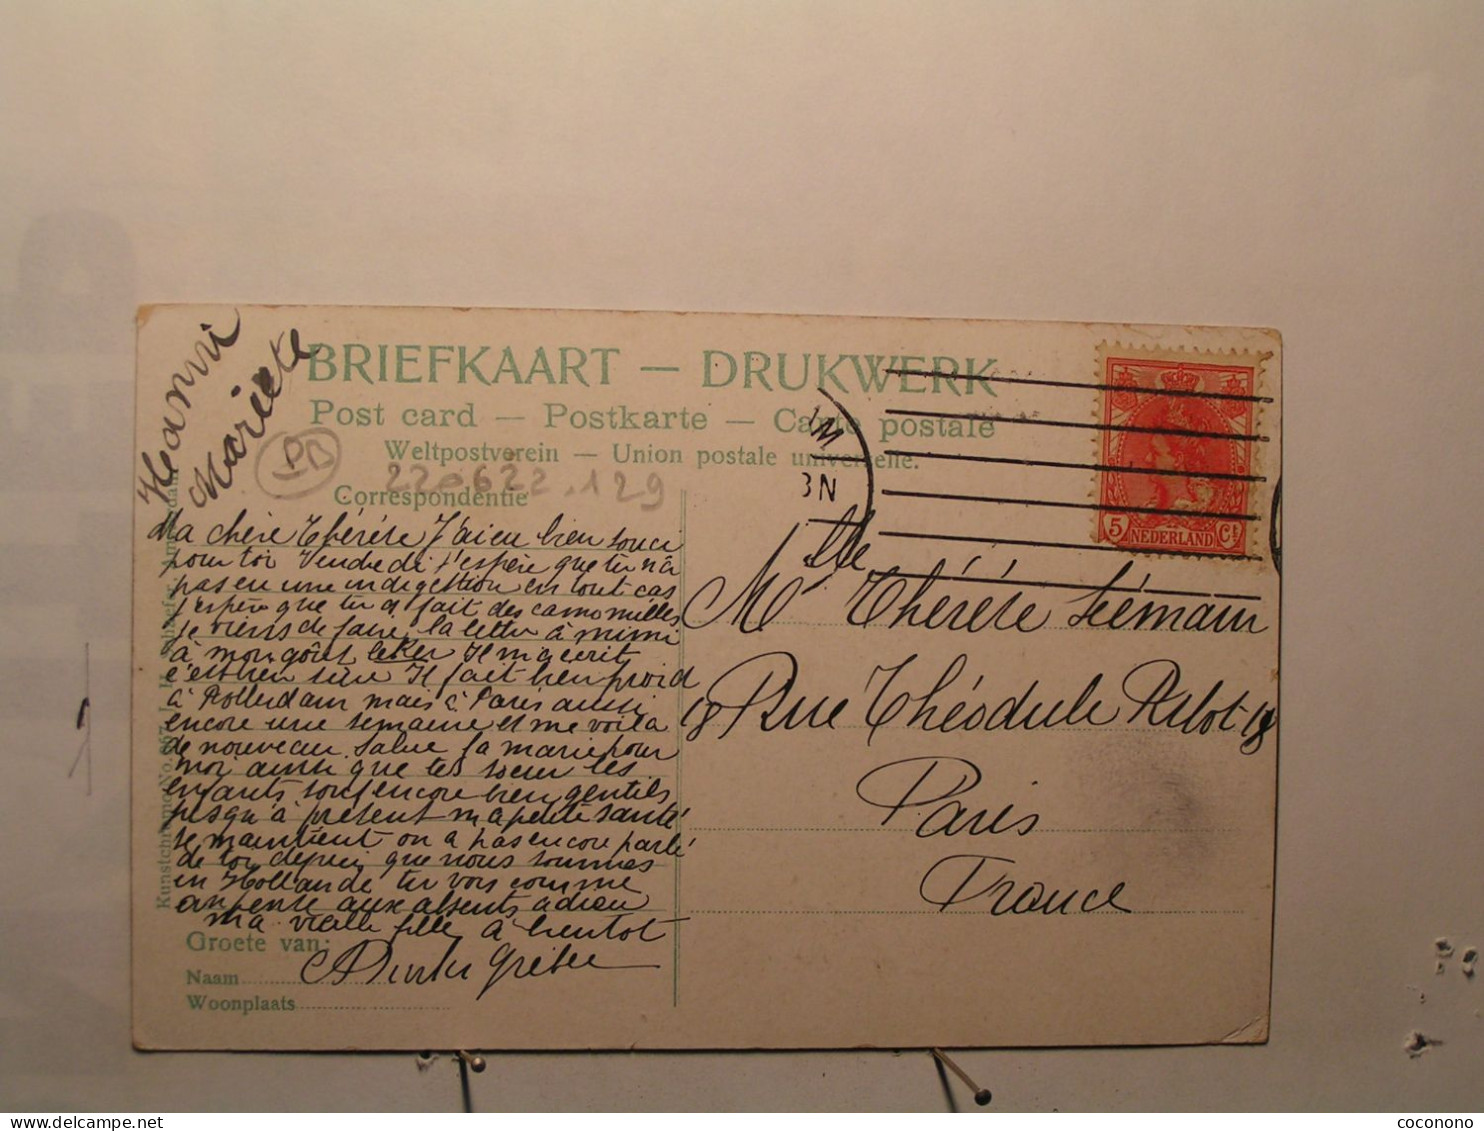 Hanni
Mariette
BRIEFKAART — DRUKWERK
Post card — Postkarte — Carte postale
Weltpostverein — Union postale universelle.
PB
220622.129
Correspondentie
Ma chère Thérèse J'ai eu bien souci
pour toi Vendredi j'espère que tu n'a
pas eu une indigestion en tout cas
j'espère que tu a fait des camomilles
je viens de faire la lettre à mimi
à mon goût lekker Il m'a écrit
c'est bien sûre Il fait bien froid
à Rotterdam mais à Paris aussi
encore une semaine et me voila
de nouveau. Salue la marie pour
moi ainsi que tes soeur les
enfants sont encore bien gentils
jusqu'à présent ma petite santé
se maintient on a pas encore parlé
de toi depuis que nous sommes
en Hollande tu vois comme
on pense aux absents adieu
ma vieille fille à bientot
Groete van:
Naam
Woonplaats
Kunstchromo No.
M
3N
5 NEDERLAND Ct
Mlle Thérèse
18 Rue Théodule Ribot 18
Paris
France
coconono